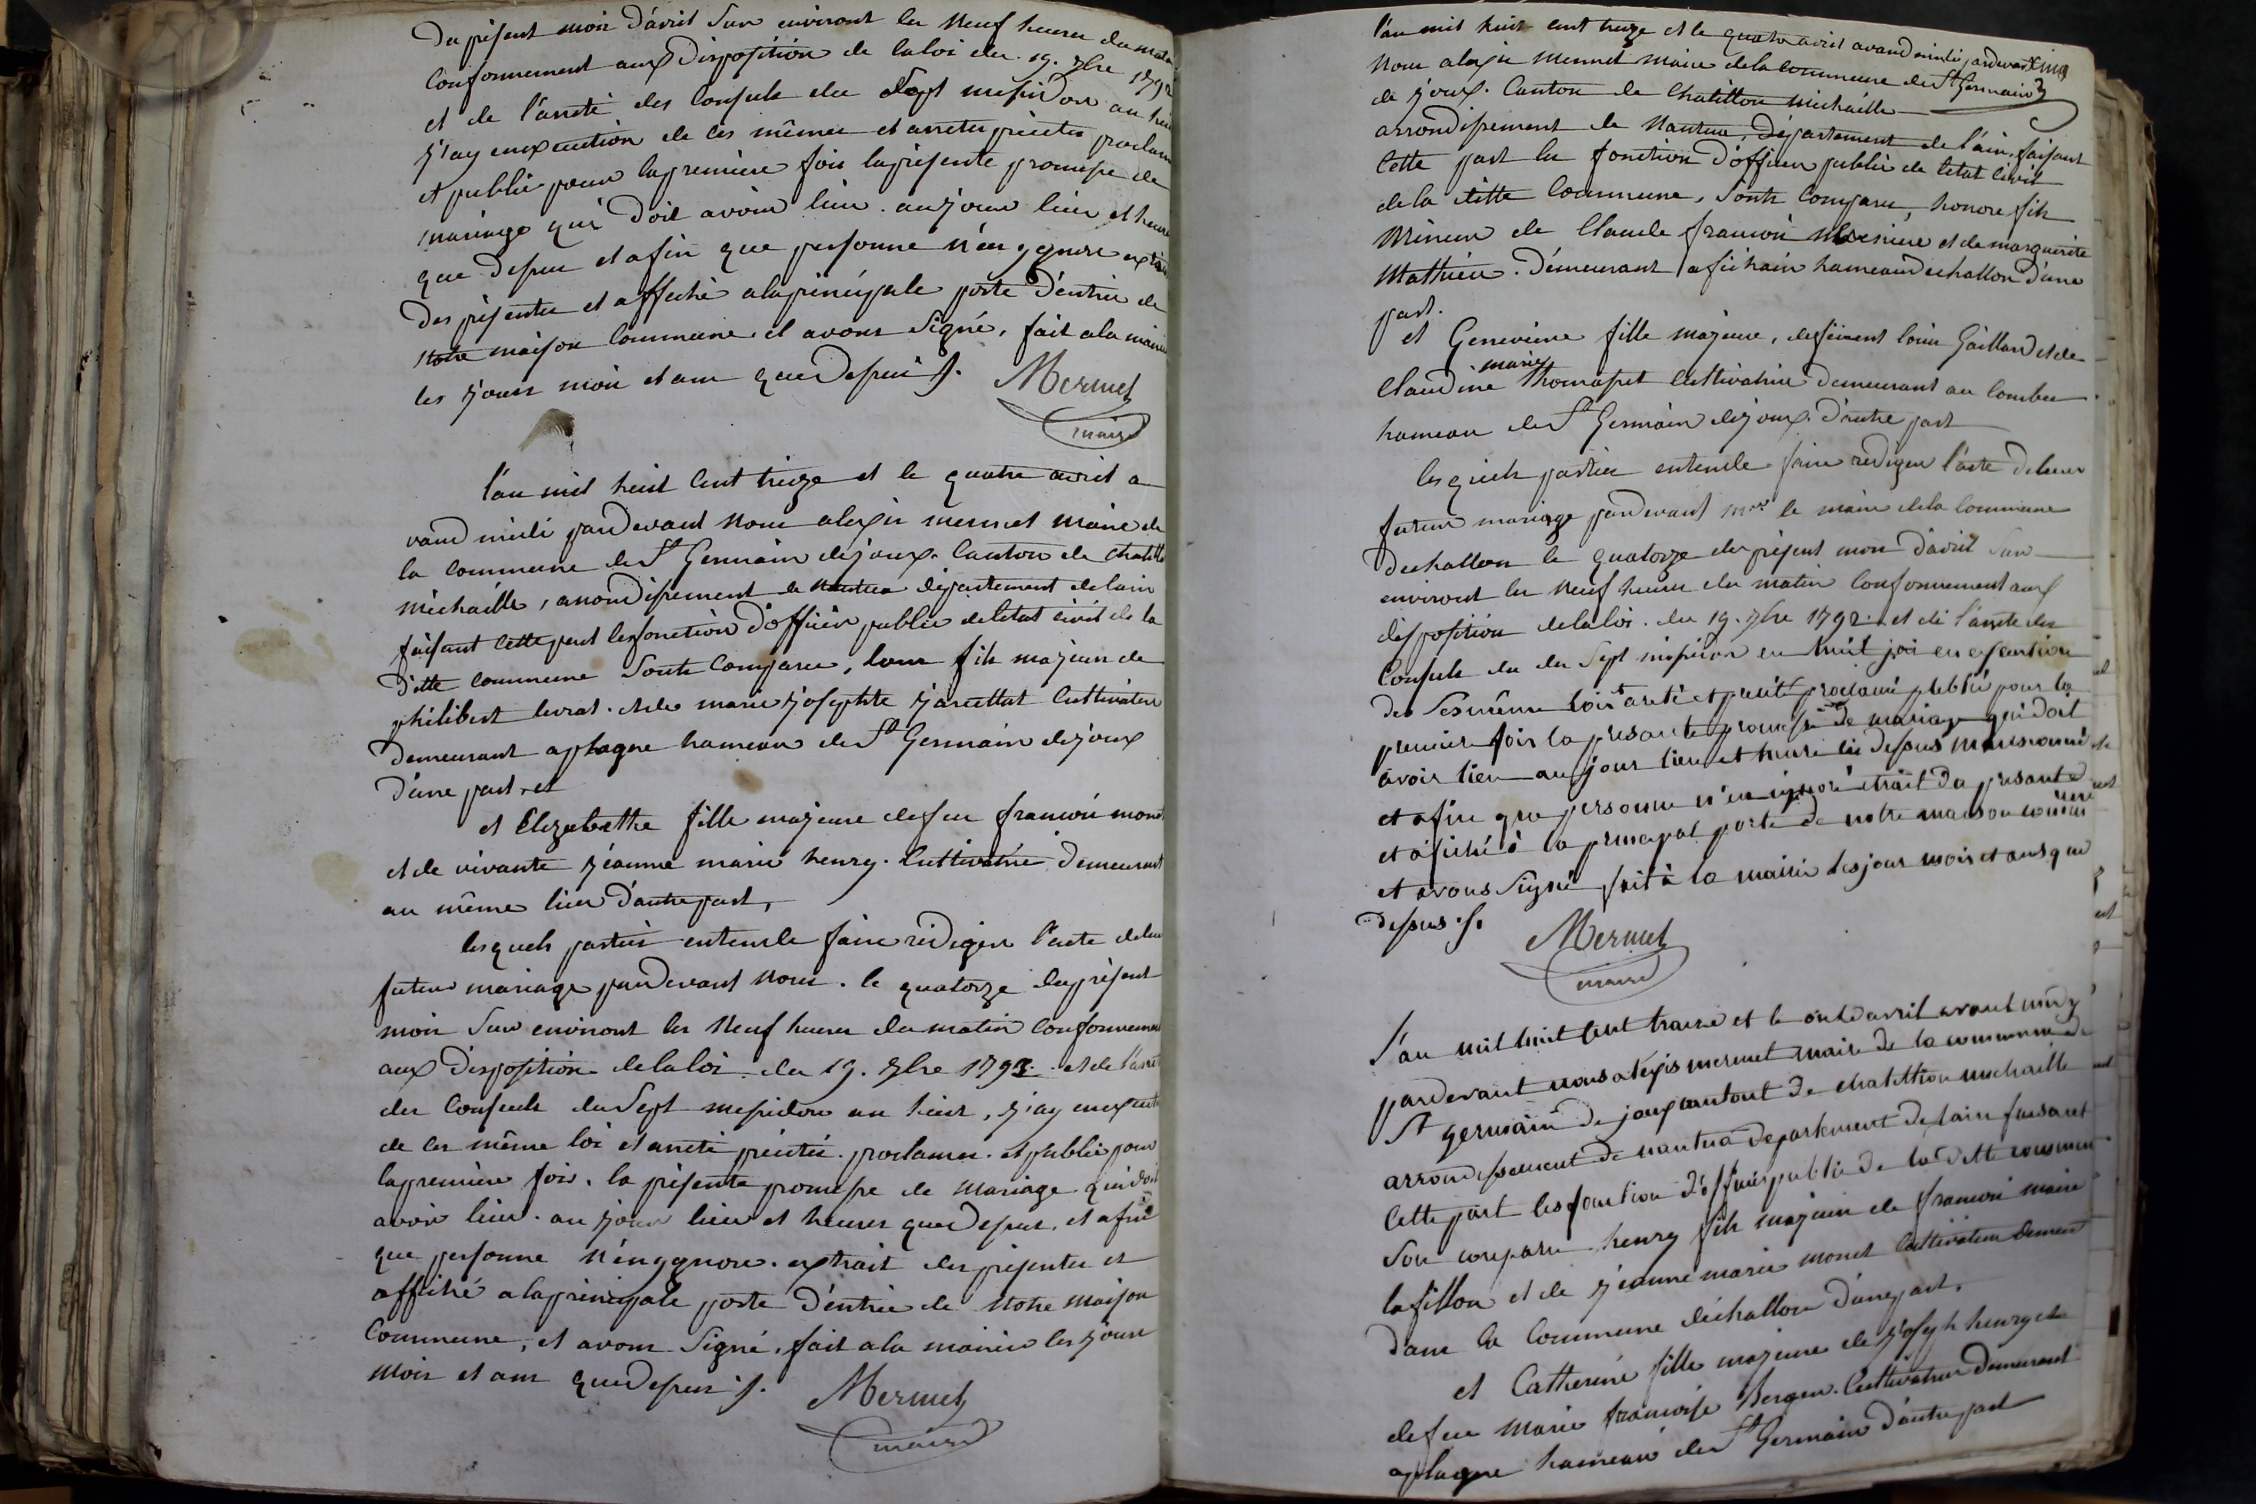 du présent mois d'avril sur environt les neuf heures du matin
conformement aux disposition de la loi du 19. 7bre 1792
et de l'arreté des consuls du sept mesidor an huit
j'ay en execution de ces mêmes et arretes précités proclamé
et publié pour la première fois la présente promesse de
mariage qui doit avoir lieu. aux jour lieu et heure
que dessus et afin que personne n'en ygnore extrait
des présentes et affiché a la principale porte d'entrée de
notre maison commune et avons signé, fait a la mairie
les jours mois et an que dessus ./.
Mermet
maire
l'an mil huit cent treize et le quatre avril a
vand midi pardevant nous alexis mermet maire de
la commune de St Germain de joux. canton de chatillon
michaille, arrondissement de nantua département de l'ain
faisant cette part les fonction d'officier public de l'etat civil de la
ditte commune sonts comparu, louis fils majeur de
philibert levrat. et de marie josephte jacettat cultivateur
demeurant a plagne hameau de St Germain de joux
d'une part, et
et Elizabetthe fille majeure de feu francois monet
et de vivante jeanne marie henry. cultivatrice demeurant
au même lieu d'autre part,
lesquels parties entende faire rédiger l'acte de leur
futur mariage pardevant nous. le quatorze du présent
mois sur environt les neuf heures du matin conformement
aux disposition de la loi. du 19. 7bre 1792. et de l'arreté
des consuls du sept mesidor an huit, j'ay en execution
de ces même loi et arreté précité. proclamer. et publié pour
la première fois. la présente promesse de mariage qui doit
avoir lieu. au jour lieu et heures que dessus, et afin
que personne n'en ygnore. extrait des présentes et
affiché a la principale porte d'entrée de notre maison
commune, et avons signé, fait a la mairie les jours
mois et an que dessus ./.
Mermet
maire
l'an mil huit cent treize et le quatre avril avand midi pardevant
nous alexis mermet maire de la commune de St Germain
de joux. canton de chatillon michaille
arrondissement de nantua, département de l'ain, faisant
cette part les fonction d'officier public de l'etat civil
de la ditte commune, sonts comparu, honoré fils
mineur de claude francois et de marguerite
mathieu. demeurant hameau dechallon d'une
part.
et Genevieve fille majeure, de feu louis Gaillard et de
claudine marie thomasset cultivatrice demeurant au combes
hameau de St Germain de joux d'autre part
lesquels parties entende faire rédiger l'acte de leur
futur mariage pardevant mr le maire de la commune
dechallon le quatorze du présent mois d'avril sur
environt les neuf heures du matin conformement aux
disposition de la loi. du 19. 7bre 1792. et de l'arreté des
consuls du du sept mesidor en huit jai en exsecution
des ses même lois areté et précité proclamé publié pour la
premiere fois la presante promesse de mariage qui doit
avoir lieu au jour lieu et heure ci dessus mansionné
et afin que personne n'en ignore extrait du presante
et afiché à la principal porte de notre maison commune
et avons signé fait à la mairie les jour mois et ans que
dessus ./.
Mermet
maire
l'an mil huit cent traize et le onze avril avant midy
pardevant nous alexis mermet maire de la commune de
St germain de joux cantont de chatillion michaille
arrondissement de nantua département de l'ain faisant
cette part les fonction d'officier public de la ditte commune
son comparu henry fils majeur de francois marie
lafillon et de jeanne marie monet cultivateur demeu
dans la commune déchallon d'une part.
et Catherine fille majeure de joseph henry et
de feu marie francoise Berger. cultivatrice demeurant
a plagne hameau de St Germain d'autre part